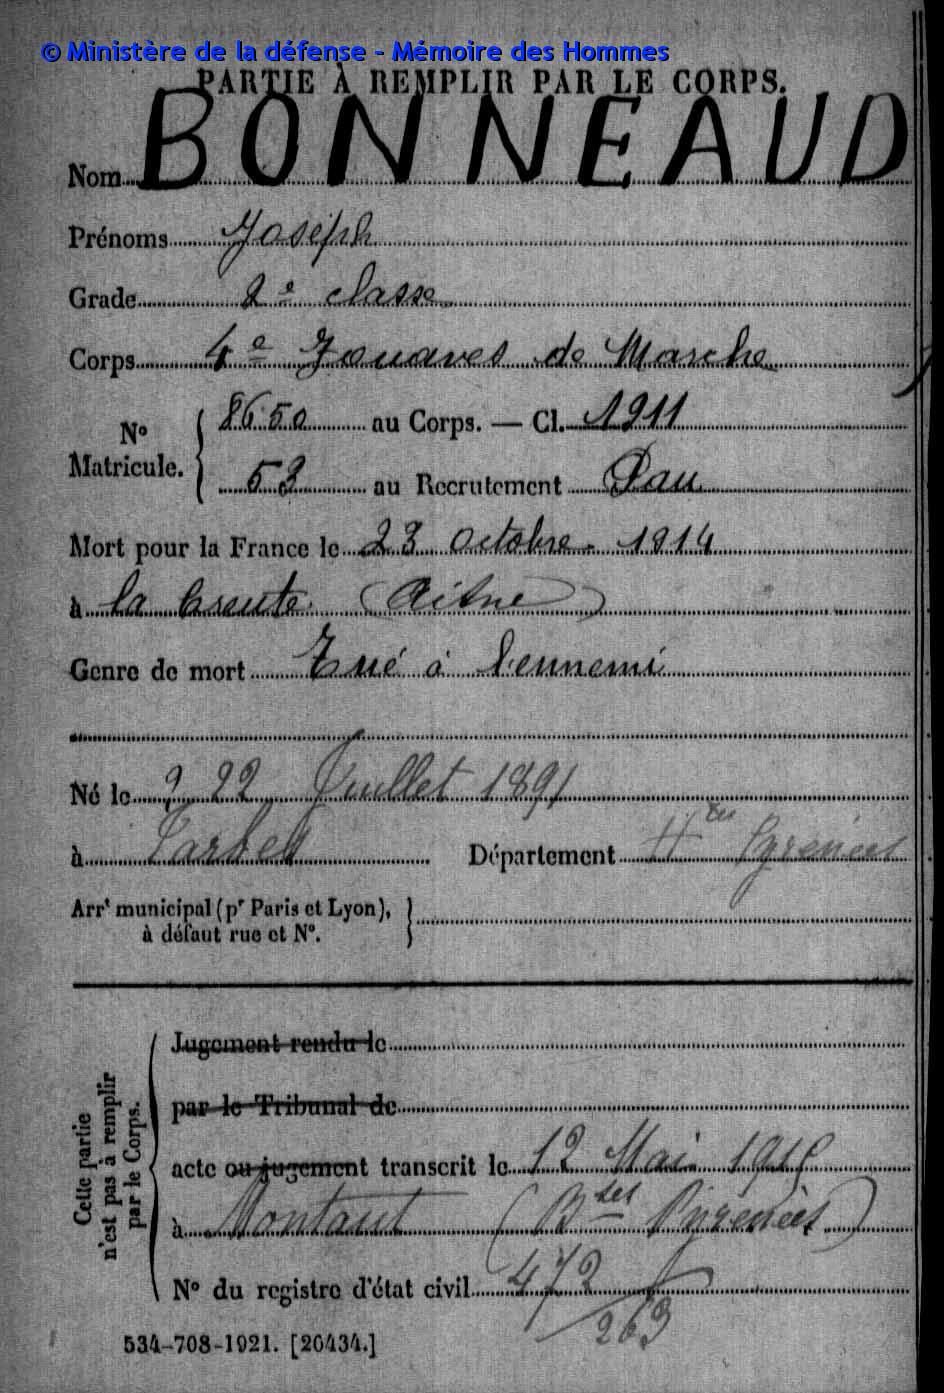 © Ministère de la défense - Mémoire des Hommes
PARTIE À REMPLIR PAR LE CORPS.
Nom BONNEAUD
Prénoms Joseph
Grade 2e classe
Corps 4e Zouaves de Marche
No Matricule. { 8650 au Corps. — Cl. 1911
53 au Recrutement Pau
Mort pour la France le 23 octobre 1914
à la (Aisne)
Genre de mort Tué à l'ennemi
Né le 22 Juillet 1891
à Tarbes Département Htes Pyrénées
Arrt municipal (pr Paris et Lyon),
à défaut rue et No.
Cette partie
n'est pas à remplir
par le Corps.
Jugement rendu le
par le Tribunal de
acte ou jugement transcrit le 12 Mai
à Montaut (Bses Pyrénées)
No du registre d'état civil 472
263
534-708-1921. [26434.]